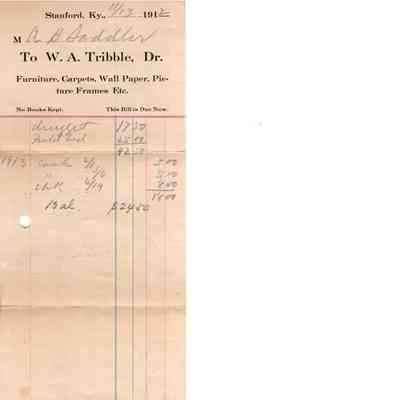 Stanford, Ky., 11/13 1912
M A B Saddler
To W. A. Tribble, Dr.
Furniture, Carpets, Wall Paper, Pic-
ture Frames Etc.
No Books Kept. This Bill is Due Now.
drugget 17 50
25 00
42 50
1913 Cash 2/1 5 00
" 3/6 5 00
chk 4/19 8 00
18 00
Bal. $24 50